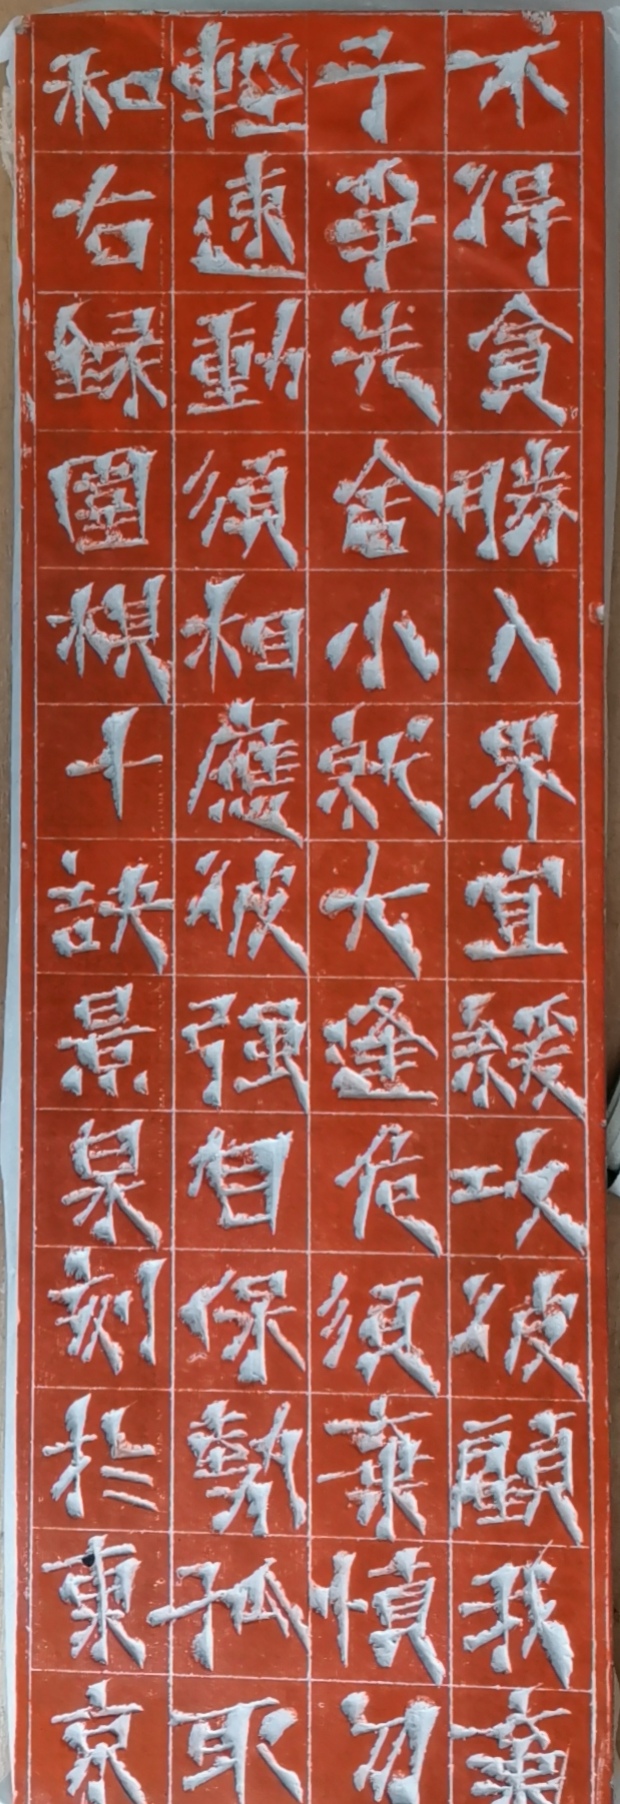 不得貪勝入界宜緩攻彼顧我棄
子爭先舍小就大逢危須棄慎勿
輕速動須相應彼强自保勢孤取
和右録圍棋十訣景泉刻於東京